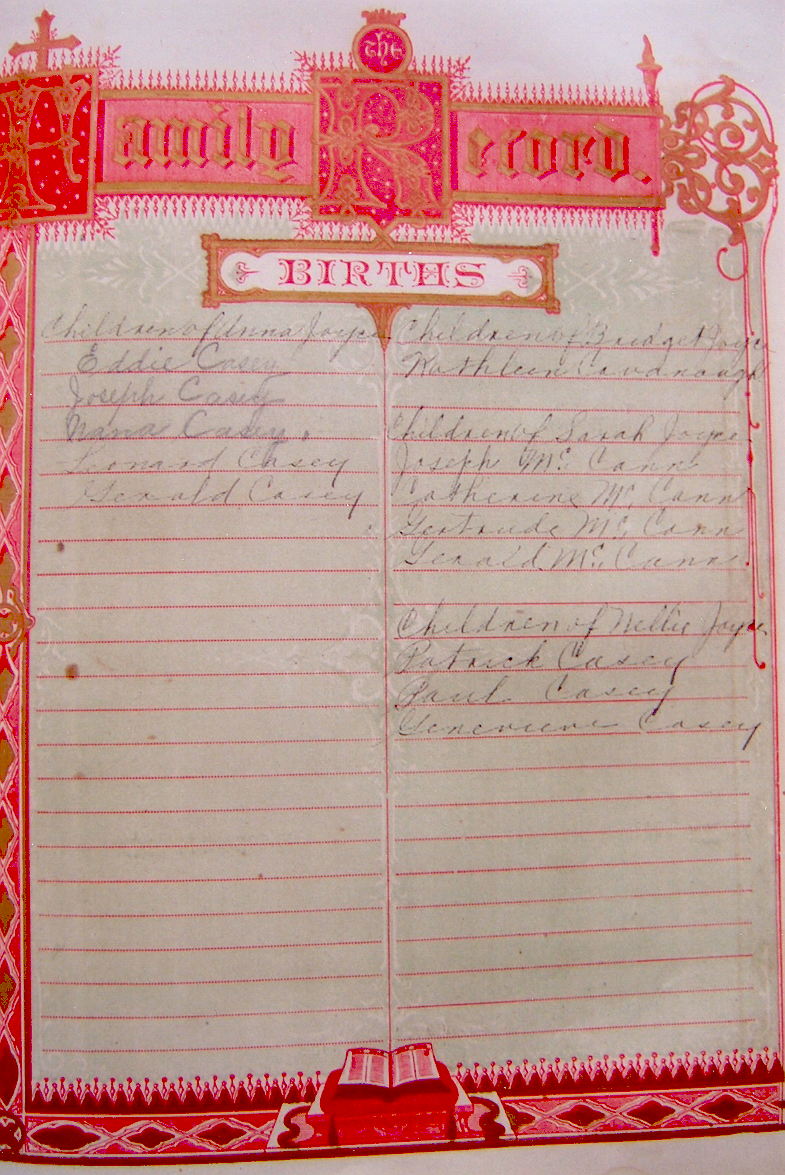 The
Family Record.
BIRTHS
Children of Anna Joyce
Eddie Casey
Joseph Casey
Nana Casey.
Leonard Casey
Gerald Casey
Children of Bridget Joyce
Kathleen Cavanaugh
Children of Sarah Joyce
Joseph Mc Cann
Catherine Mc Cann
Gertrude Mc Cann
Gerald Mc Cann
Children of Nellie Joyce
Patrick Casey
Paul Casey
Genevieve Casey